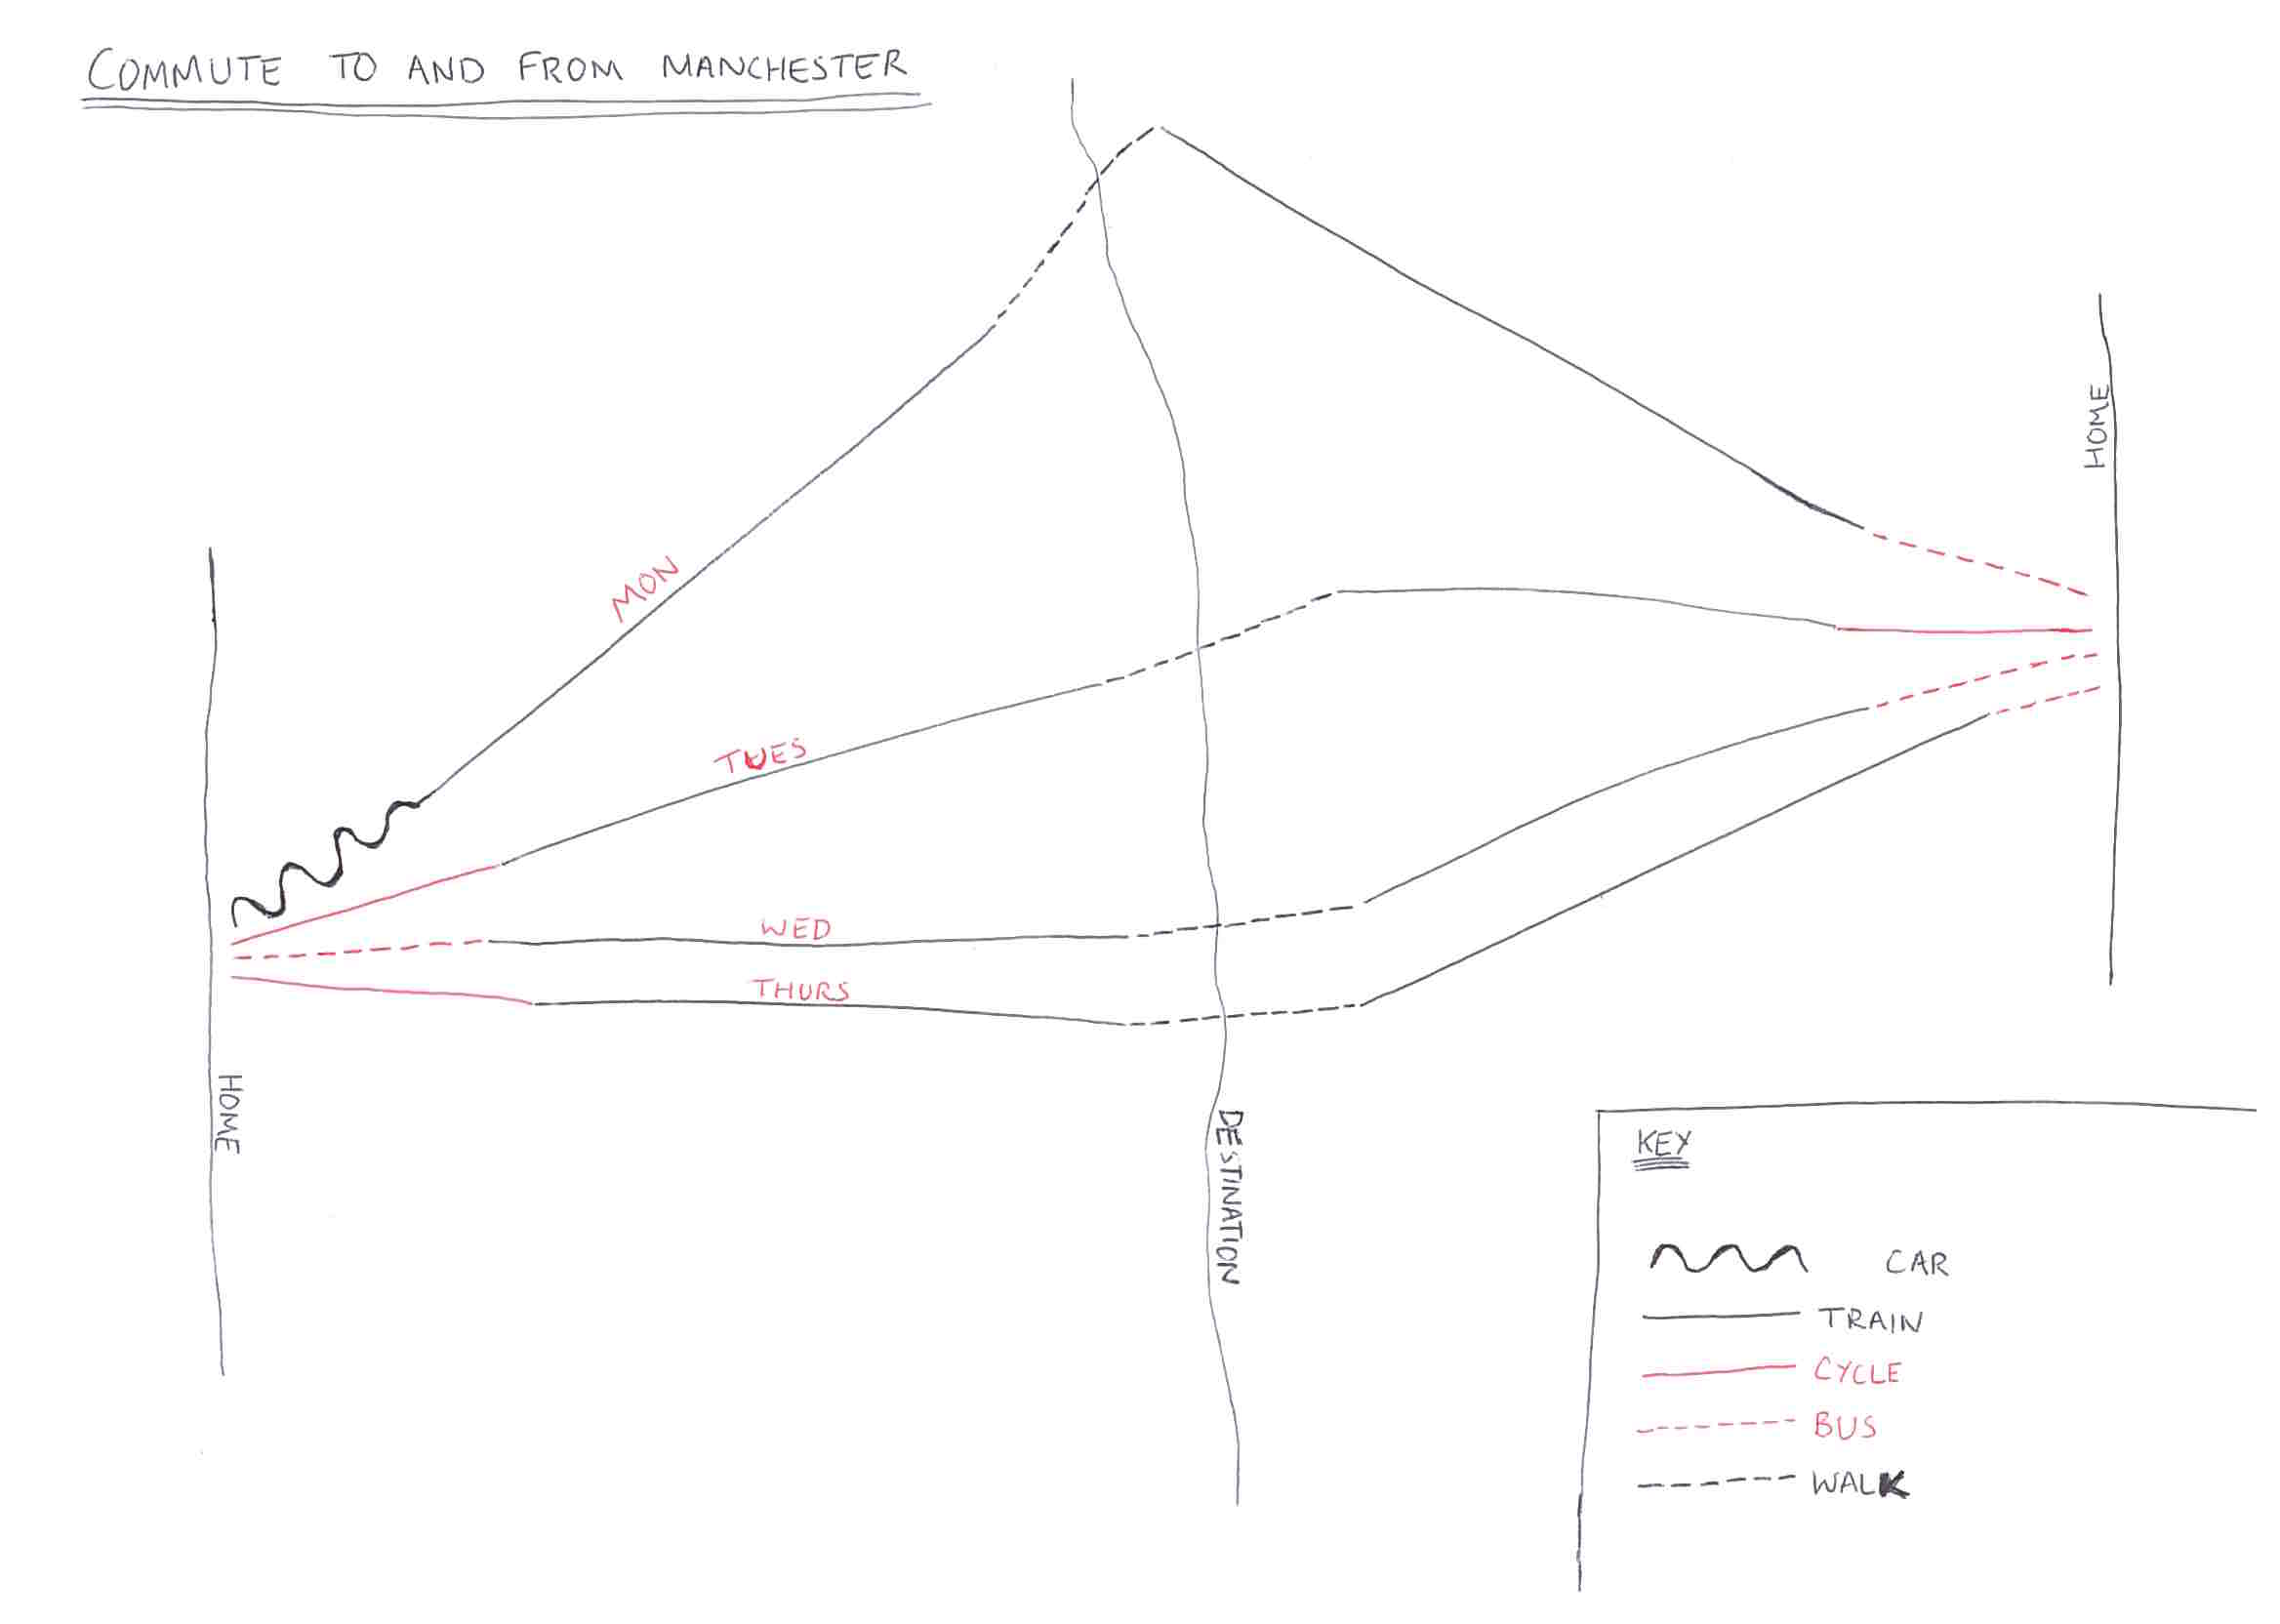 COMMUTE TO AND FROM MANCHESTER
HOME
MON
TUES
WED
THURS
HOME
DESTINATION
KEY
CAR
TRAIN
CYCLE
BUS
WALK